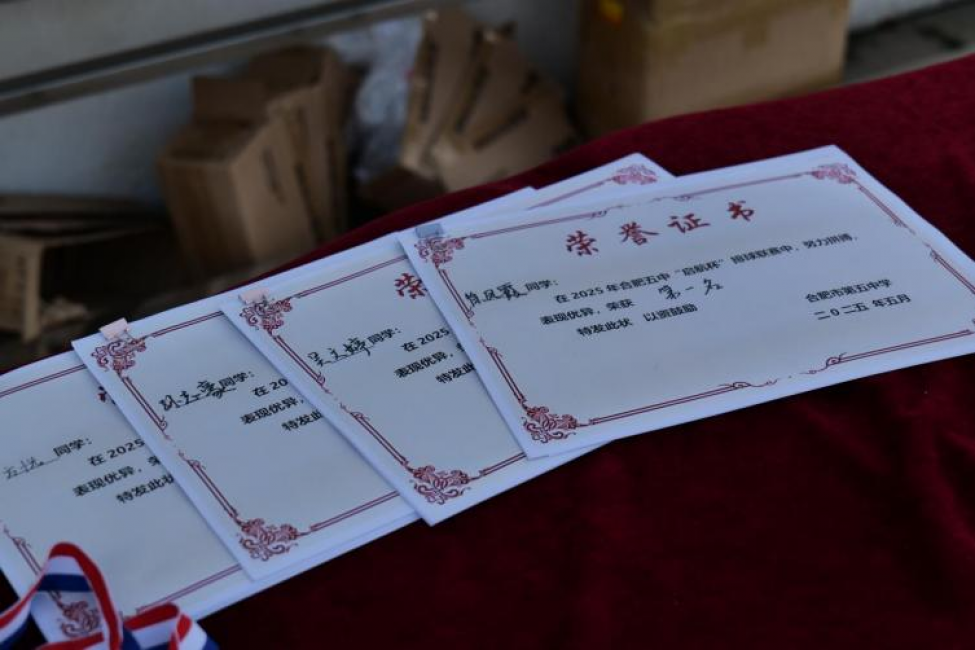 荣誉证书
同学：
在2025年合肥五中“启航杯”排球联赛中，努力拼搏，
表现优异，荣获 第一名
特发此状 以资鼓励
合肥市第五中学
二〇二五年五月
荣
吴文婷同学：
在2025
表现优异，
特
同学：
在20
表现优异，
特发此
同学：
在2025
表现优异，荣
特发此状